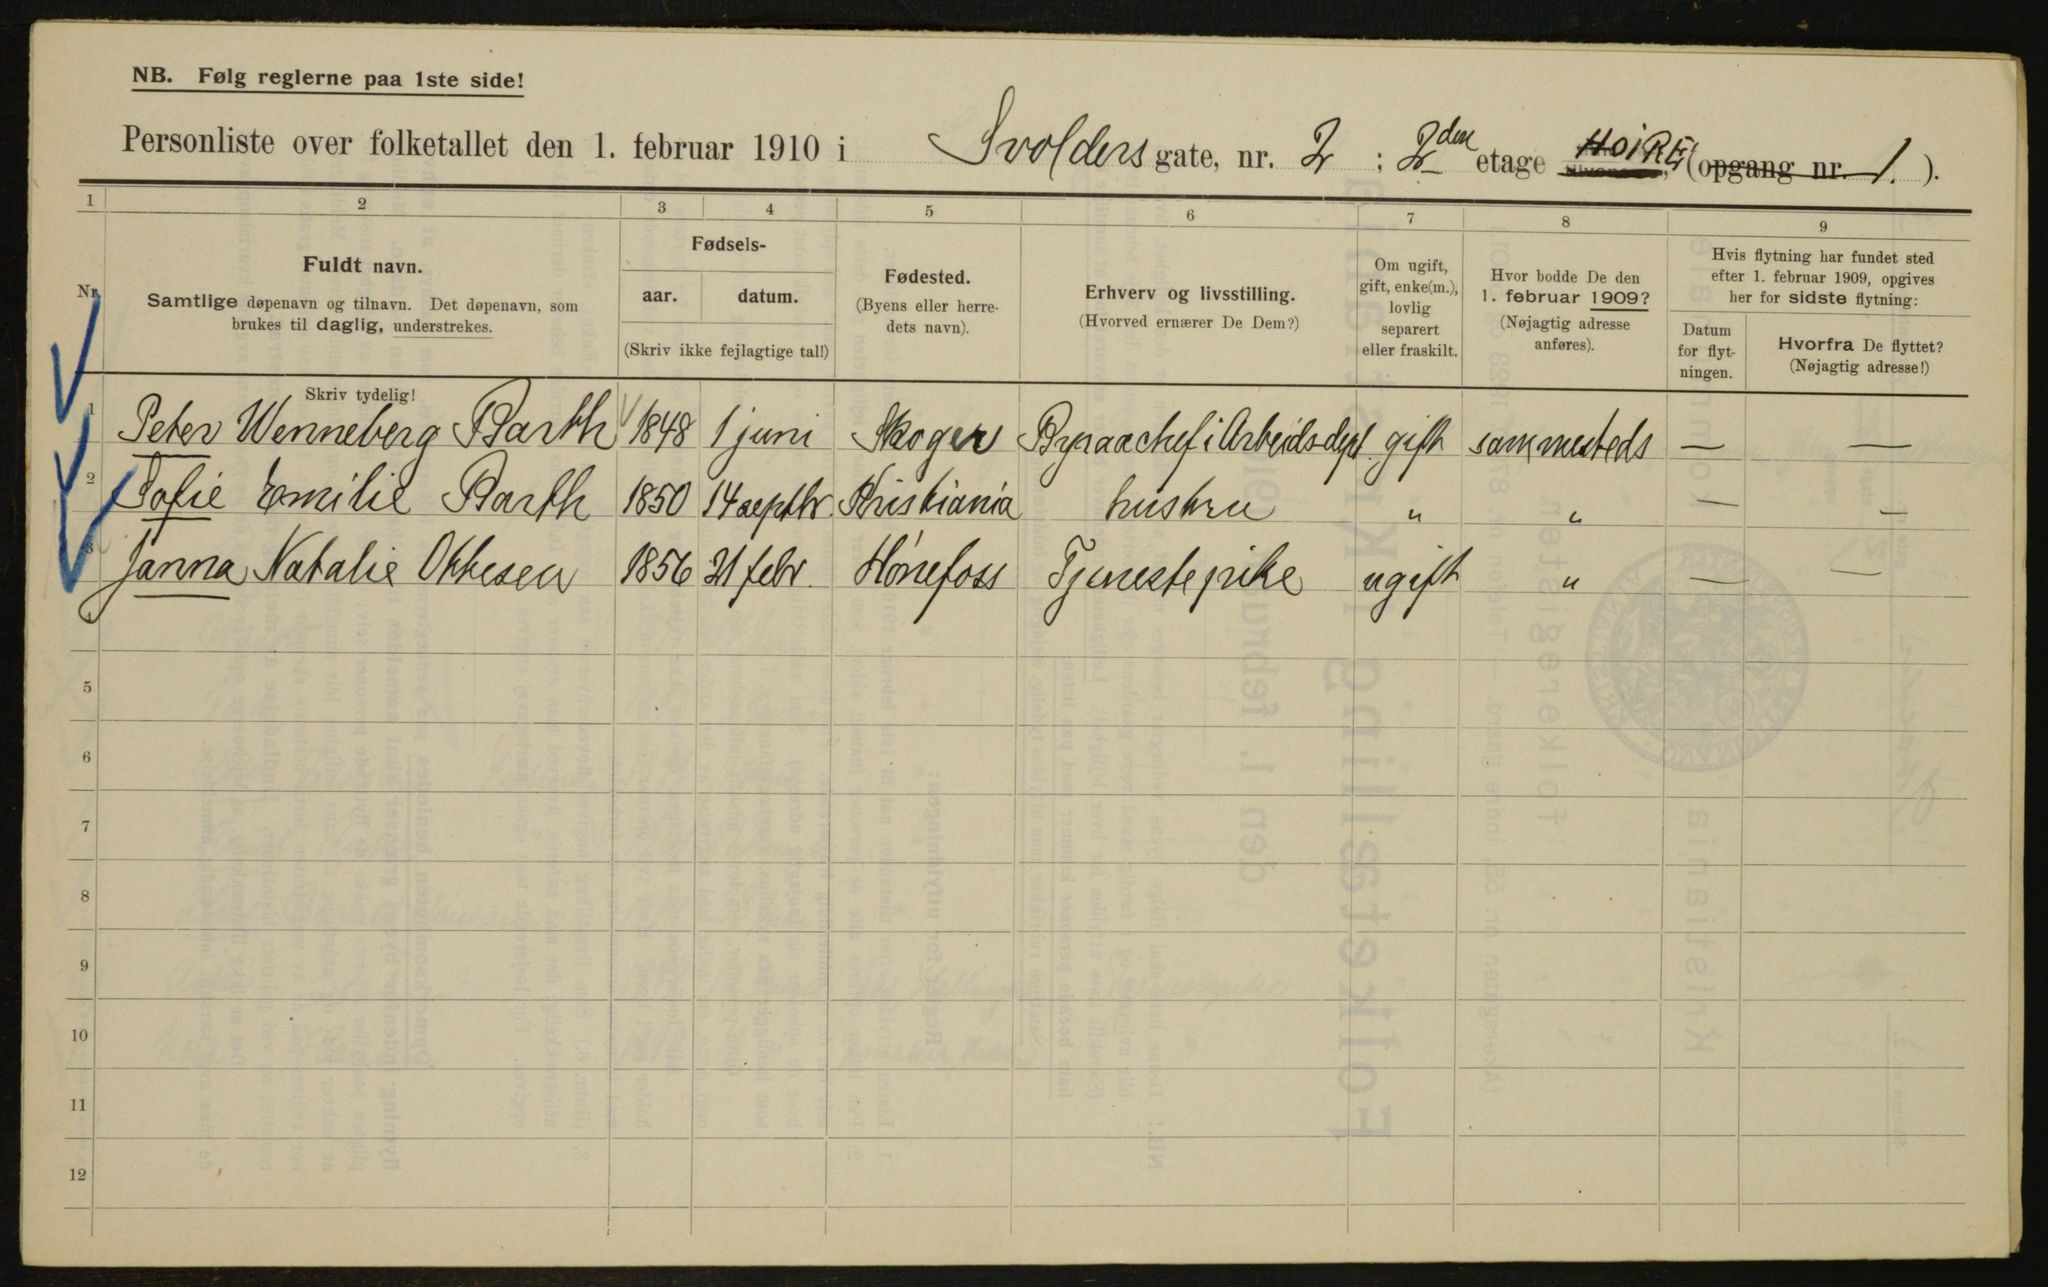 NB. Følg reglerne paa 1ste side!
Personliste over folketallet den 1. februar 1910 i Svolders gate, nr. 2 ; 2den etage HØIRE, (opgang nr. 1. ).
1 2 3 4 5 6 7 8 9
Nr. Fuldt navn. Samtlige døpenavn og tilnavn. Det døpenavn, som
brukes til daglig, understrekes.
Skriv tydelig!
Fødsels-
aar. datum.
(Skriv ikke fejlagtige tal!)
Fødested.
(Byens eller herre-
dets navn).
Erhverv og livsstilling.
(Hvorved ernærer De Dem?)
Om ugift,
gift, enke(m.),
lovlig
separert
eller fraskilt.
Hvor bodde De den
1. februar 1909?
(Nøjagtig adresse
anføres).
Hvis flytning har fundet sted
efter 1. februar 1909, opgives
her for sidste flytning:
Datum
for flyt-
ningen.
Hvorfra De flyttet?
(Nøjagtig adresse!)
1 Peter Wenneberg Barth 1848 1 juni Skoger Byraachef i Arbeidsdept. gift sammesteds — —
2 Sofie Emilie Barth 1850 14 septbr. Kristiania hustru " " — —
3 Janna Natalie Okkesen 1856 21 febr. Hønefoss Tjenestepike ugift " — —
4
5
6
7
8
9
10
11
12